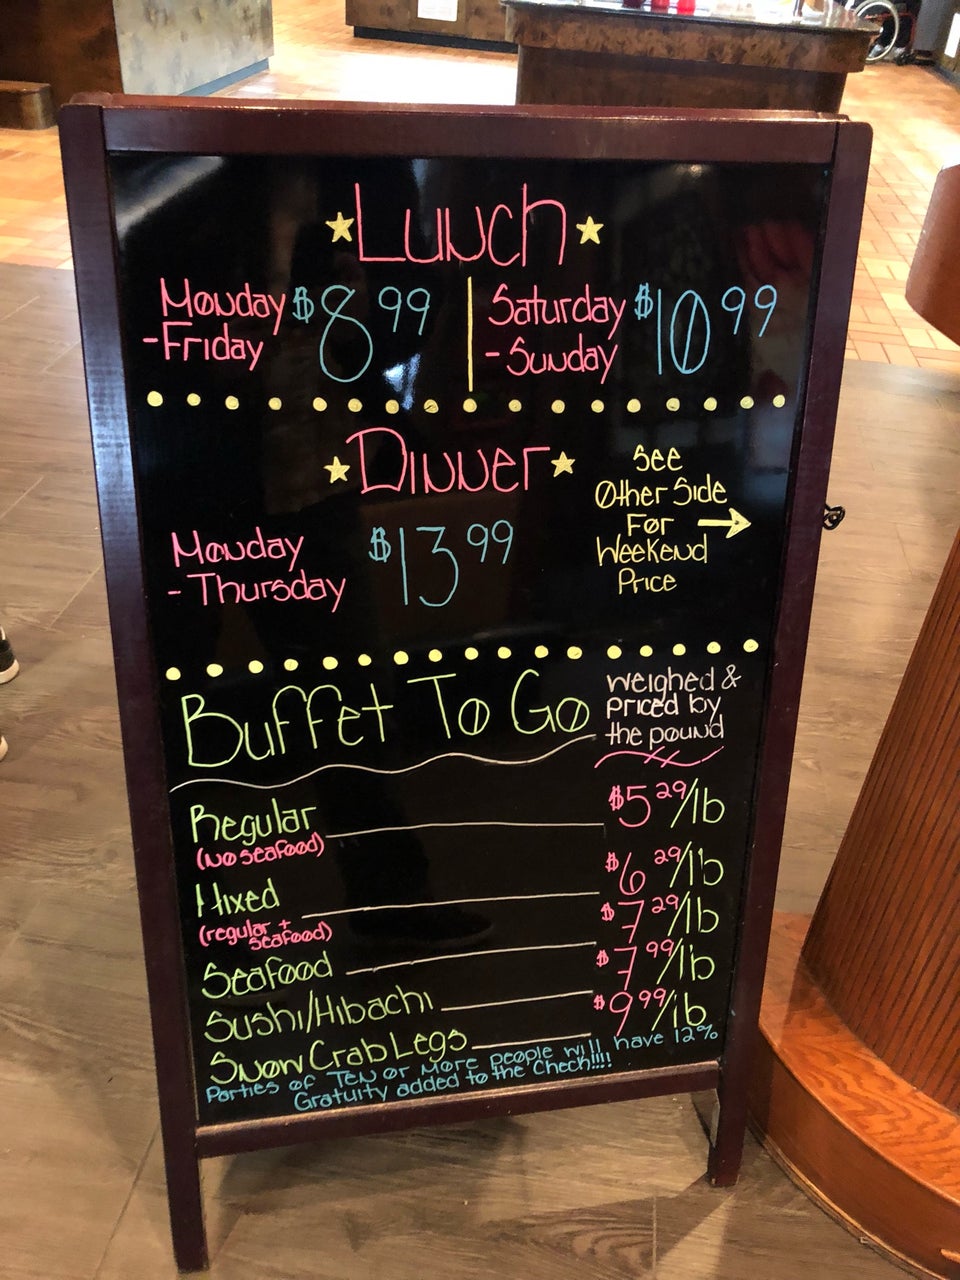 Lunch
Monday
-Friday
$8.99
Saturday
-Sunday
$10.99
Dinner
Monday
- Thursday
$13.99
See
Other Side
For
Weekend
Price
Buffet To Go
weighed &
priced by
the pound
Regular $5.29/lb
(no seafood)
Mixed $6.29/lb
(regular +
seafood)
Seafood $7.29/lb
Sushi/Hibachi $7.99/lb
Snow Crab Legs $9.99/lb
Parties of Ten or More people will have 12%
Gratuity added to the Check!!!!